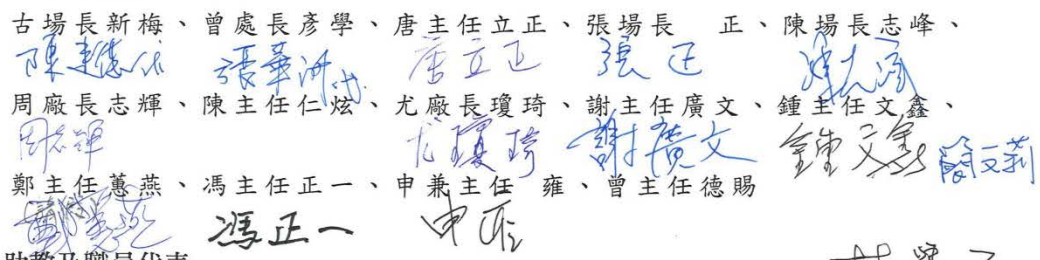 古場長新梅、曾處長彥學、唐主任立正、張場長　正、陳揚長志峰、
陳建德代 張華洲代 唐立正 張正 陳志峰
周廠長志輝、陳主任仁炫、尤廠長瓊琦、謝主任廣文、鍾主任文鑫、
周志輝 尤瓊琦 謝廣文 鍾文鑫 簡文莉
鄭主任蕙燕、馮主任正一、申兼主任 雍、曾主任德賜
馮正一 申雍
助教及職員代表